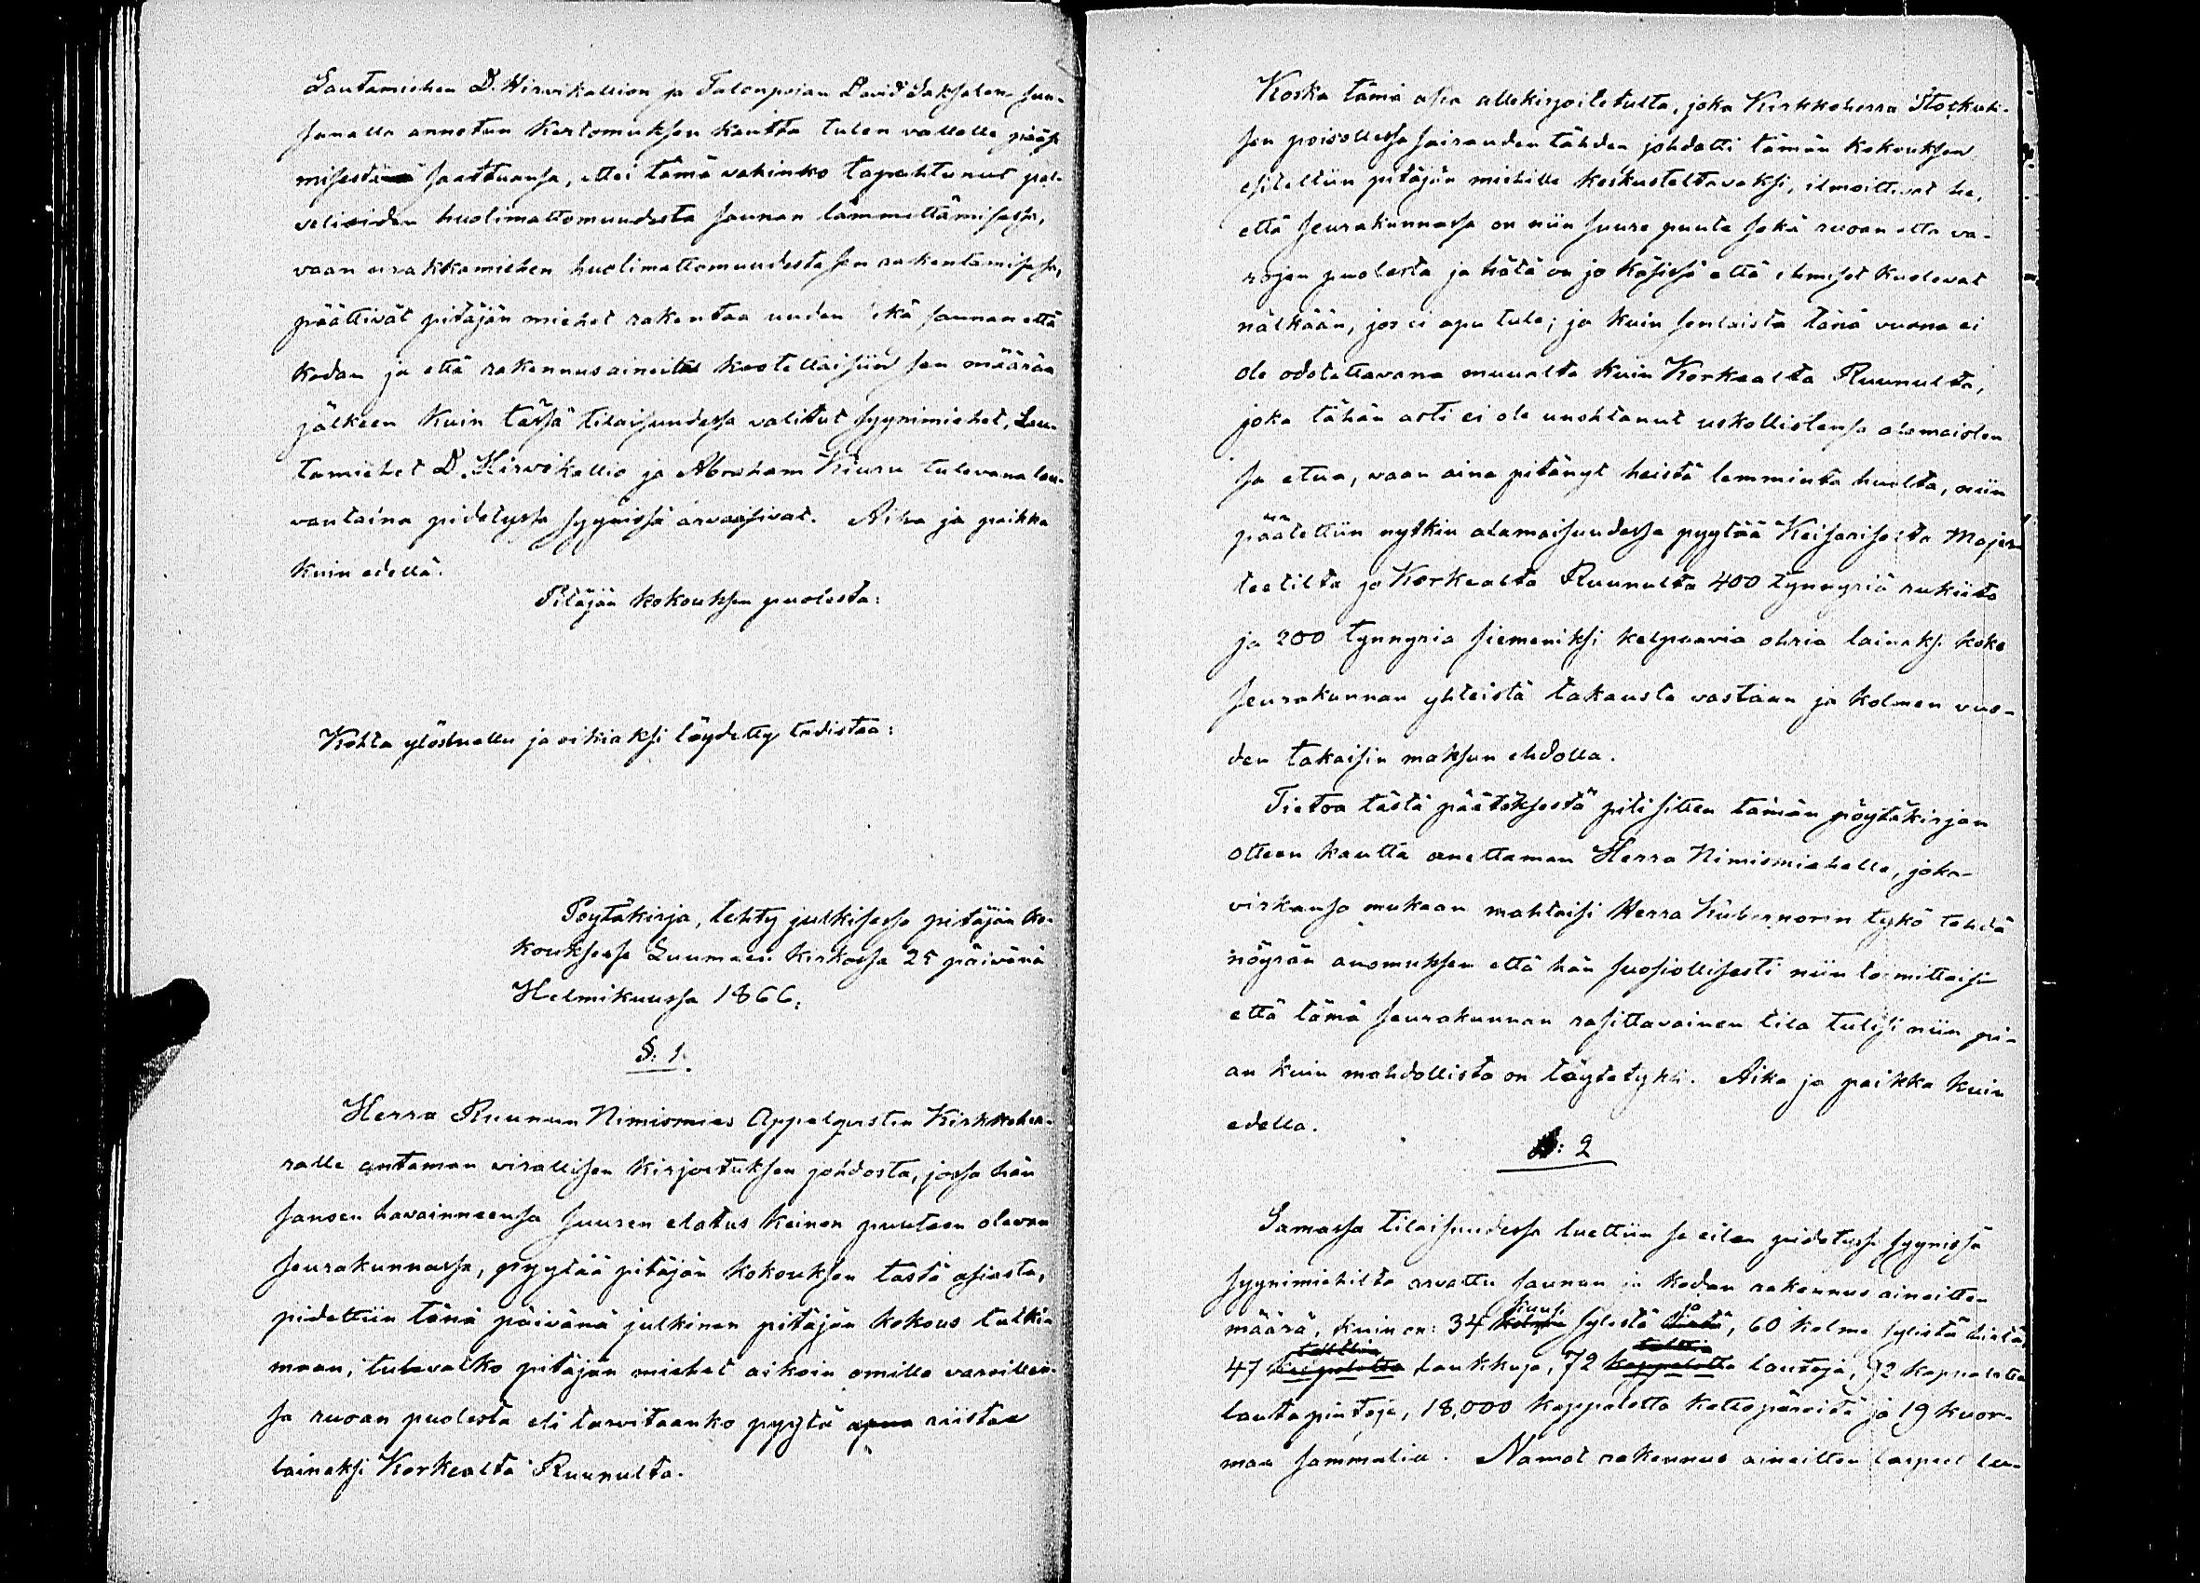 Lautamiehen D. Hirvikallion ja Talonpojan David Saksalan suu-
sanalla annetun kertomuksen kautta tulen vallalle pääse
misestä saattuansa, ettei tämä vahinko tapahtunut pal-
velioiden huolimattomuudesta saunan lämmittämisessä,
vaan urakkamiehen huolimattomuudesta sen rakentamisessa,
päättivät pitäjän miehet rakentaa uuden sekä saunan että
kodan ja että rakennusaineita koetellaisiin sen määrän
jälkeen kuin tässä tilaisuudessa valitut syynimiehet, Lau-
tamiehet D. Hirvikallio ja Abraham Kiuru tulevana lau-
vantaina pidetyssä syynissä arvaasivat. Aika ja paikka
kuin edellä.
Pitäjän kokouksen puolesta:
Kohta ylösluettu ja oikiaksi löydetty todistaa:
Pöytäkirja, tehty julkisessa pitäjän ko-
kouksessa Luumäen kirkossa 25 päivänä
Helmikuussa 1866.
§: 1.
Herra Ruunun Nimismies Appelgrenin Kirkkoher-
ralle antaman virallisen kirjoituksen johdosta, jossa hän
sanoen havainneensa suuren elatus keinon puutteen olevan
seurakunnassa, pyytää pitäjän kokouksen tästä asiasta,
pidettiin tänä päivänä julkinen pitäjän kokous tutkia
maan, tulevatko pitäjän miehet aikoin omilla varoillan-
sa ruoan puolesta eli tarvitaanko pyytä apua riistaa
lainaksi Korkealta Ruunulta.
Koska tämä asia allekirjoitetulta, joka Kirkkoherra Stockuk-
sen poisollessa sairauden tähden johdatti tämän kokouksen
esiteltiin pitäjän miehille keskusteltavaksi, ilmoittivat he,
että seurakunnassa on niin suuri puute sekä ruoan että va-
rojen puolesta ja hätä on jo käsissä että ihmiset kuolevat
nälkään, jos ei apu tule; ja kuin senlaista tänä vuona ei
ole odotettavana muualta kuin Korkealta Ruunulta,
joka tähän asti ei ole unohtanut uskollistensa alamaisten
sa etua, vaan aina pitänyt heistä lemmintä huolta, niin
päätettiin nytkin alamaisuudessa pyytää Keisarisesta Majes-
teetilta ja Korkealta Ruunulta 400 tynnyriä rukiita
ja 200 tynnyria siemeniksi kelpaavia ohria lainaksi koko
seurakunnan yhteistä takausta vastaan ja kolmen vuo-
den takaisin maksun ehdolla.
Tietoa tästä päätöksestä piti sitten tämän pöytäkirjan
otteen kautta anettaman Herra Nimismiehelle, joka
virkansa mukaan mahtaisi Herra Kübernorin tykö tehdä
nöyrän anomuksen että hän suosiollisesti niin toimittaisi
että tämä seurakunnan rasittavainen tila tulisi niin pi-
an kuin mahdollista on täytetyksi. Aika ja paikka kuin
edellä.
§: 2
Samassa tilaisuudessa luettiin se eilen pidetyssä syynissä
syynimiehiltä arvattu saunan ja kodan rakennus aineitten
määrä, kuin on: 34 kuusi sylistä, 60 kolme sylistä hirtä,
47 laukkuja, 72 lautoja, 72 kappaletta
lautapintoja, 18,000 kappaletta kattopäreitä ja 19 kuor-
maa sammalia. Namat rakennus aineitten